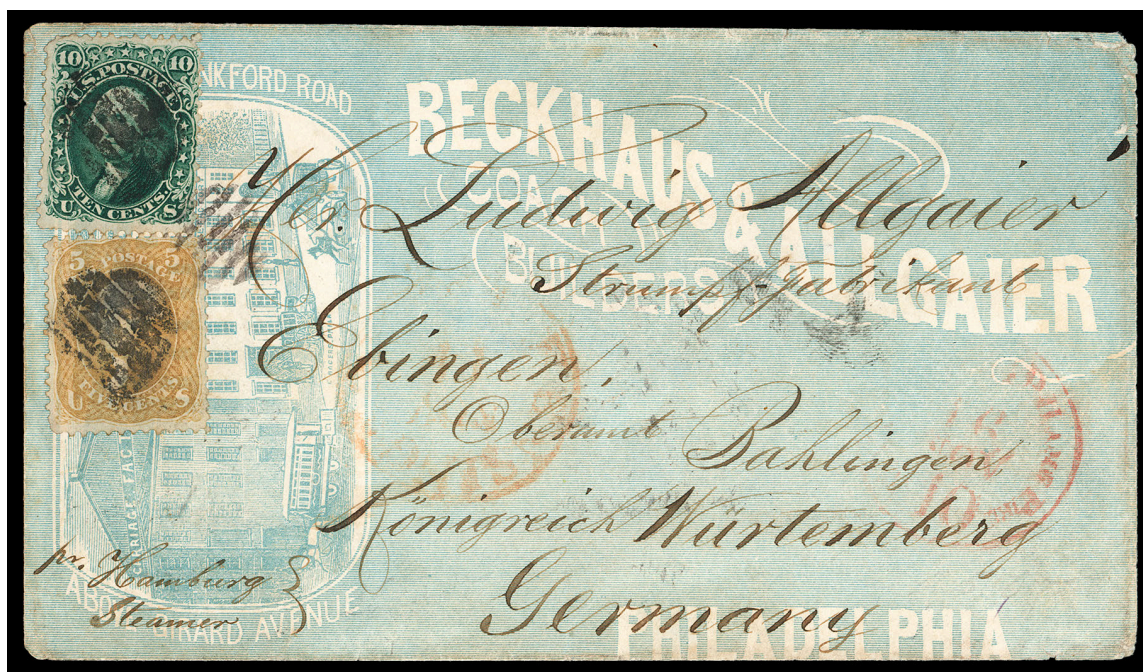 10 10
U.S. POSTAGE
TEN CENTS.
U S
5 5
POSTAGE
FIVE CENTS
U S
NKFORD ROAD
BECKHAUS & ALLGAIER
COACH
BUILDERS
CARRIAGE FAC
ABO GIRARD AVENUE
PHILADELPHIA
Her. Ludwig Allgaier
Strumpf-Fabrikant
Ebingen,
Oberamt Bahlingen
Königreich Würtemberg
Germany
pr. Hamburg
Steamer